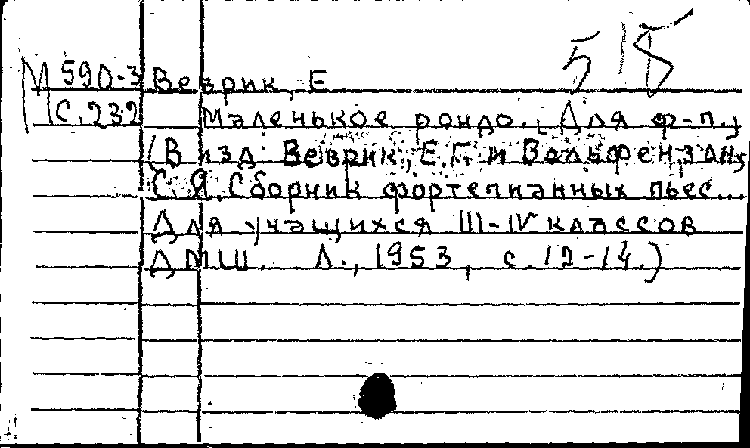 515
М 590-3 Веврик, Е
С.232 Маленькое рондо. [Для ф-п.]
(В изд: Веврик, Е.Г. и Вольфензон,
С.Я. Сборник фортепианных пьес...
Для учащихся III-IV классов
ДМШ. Л., 1953, с. 12-14.)